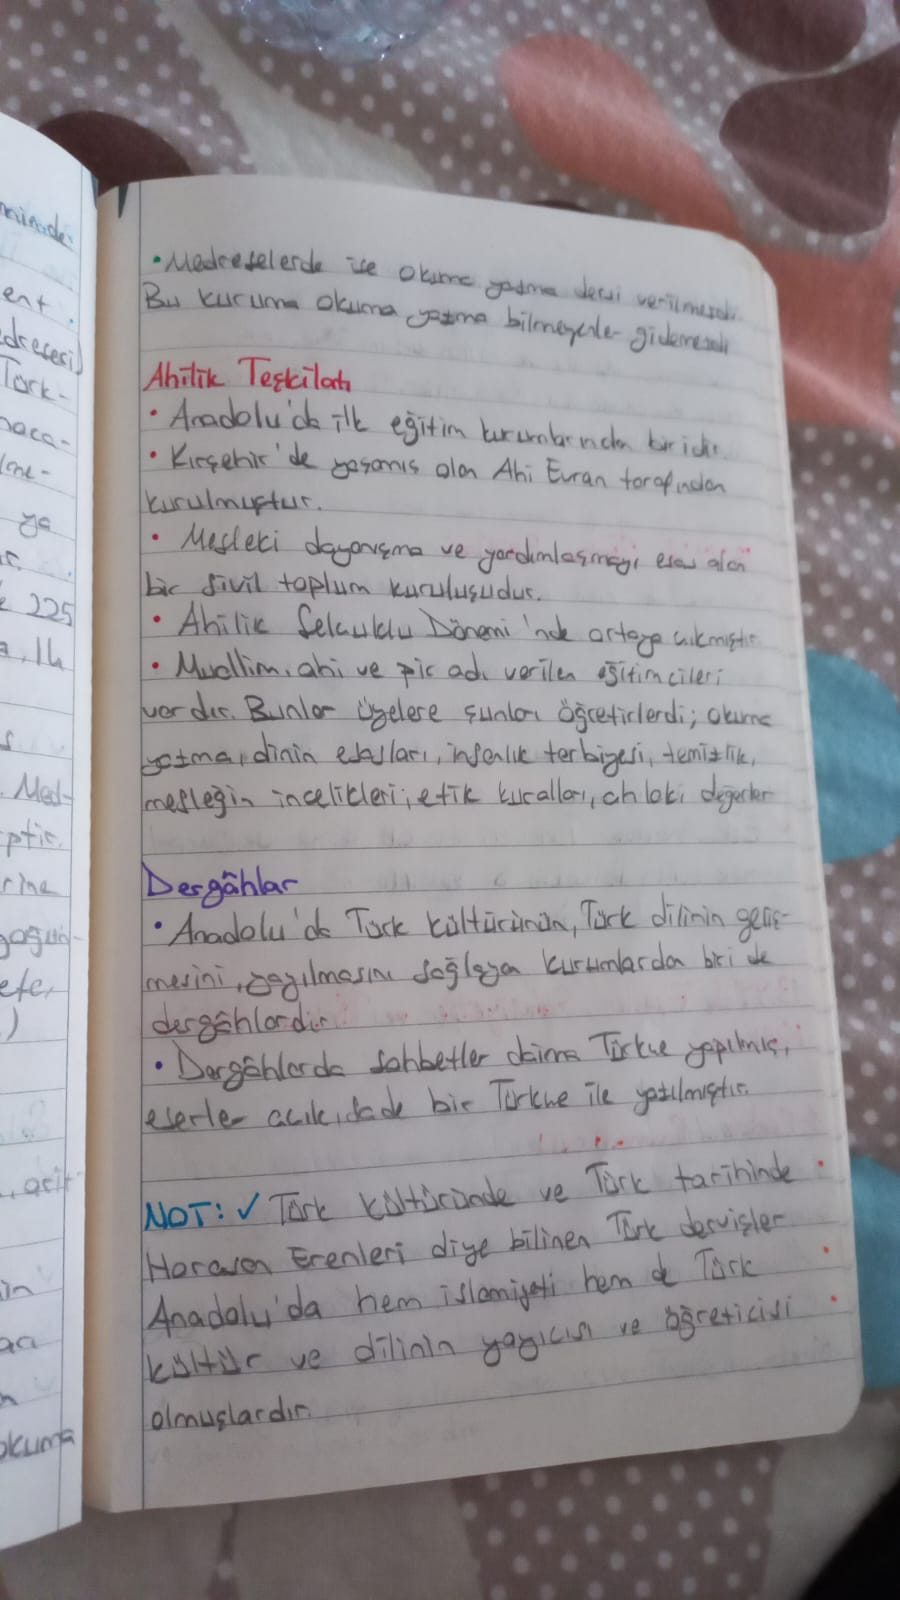 minde
ent.
edresesi)
Türk-
ya
225
Med-
ptir.
rine
okuma
• Medreselerde ise okuma yazma dersi verilmezdi.
Bu kuruma okuma yazma bilmeyenler gidemezdi
Ahilik Teşkilatı
• Anadolu'da ilk eğitim kurumlarından biridir.
• Kırşehir'de yaşamış olan Ahi Evran tarafından
kurulmuştur.
• Mesleki dayanışma ve yardımlaşmayı esas alan
bir sivil toplum kuruluşudur.
• Ahilik Selçuklu Dönemi'nde ortaya çıkmıştır.
• Muallim, ahi ve pir adı verilen eğitimcileri
vardır. Bunlar üyelere şunları öğretirlerdi; okuma
yazma, dinin esasları, insanlık terbiyesi, temizlik,
mesleğin incelikleri, etik kuralları, ahlaki değerler
Dergâhlar
• Anadolu'da Türk kültürünün, Türk dilinin geliş-
mesini, yayılmasını sağlayan kurumlardan biri de
dergâhlardır.
• Dergâhlarda sohbetler daima Türkçe yapılmış,
eserler açık, sade bir Türkçe ile yazılmıştır.
NOT: ✓ Türk kültüründe ve Türk tarihinde
Horasan Erenleri diye bilinen Türk dervişler
Anadolu'da hem islamiyeti hem de Türk
kültür ve dilinin yayıcısı ve öğreticisi
olmuşlardır.